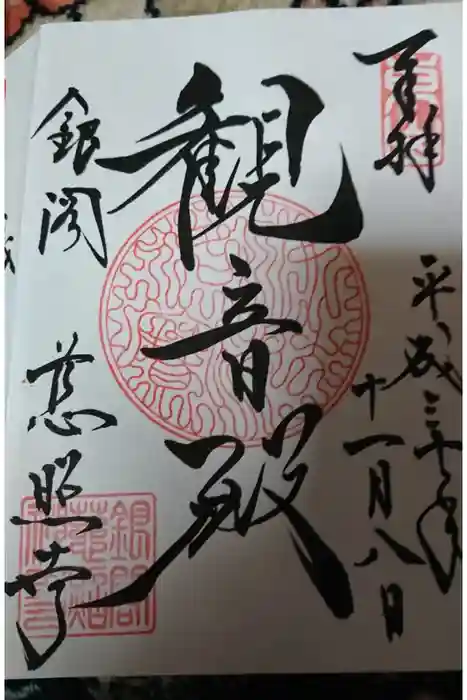 奉拝
平成三十年
十一月八日
観音殿
銀閣
慈照寺
銀閣